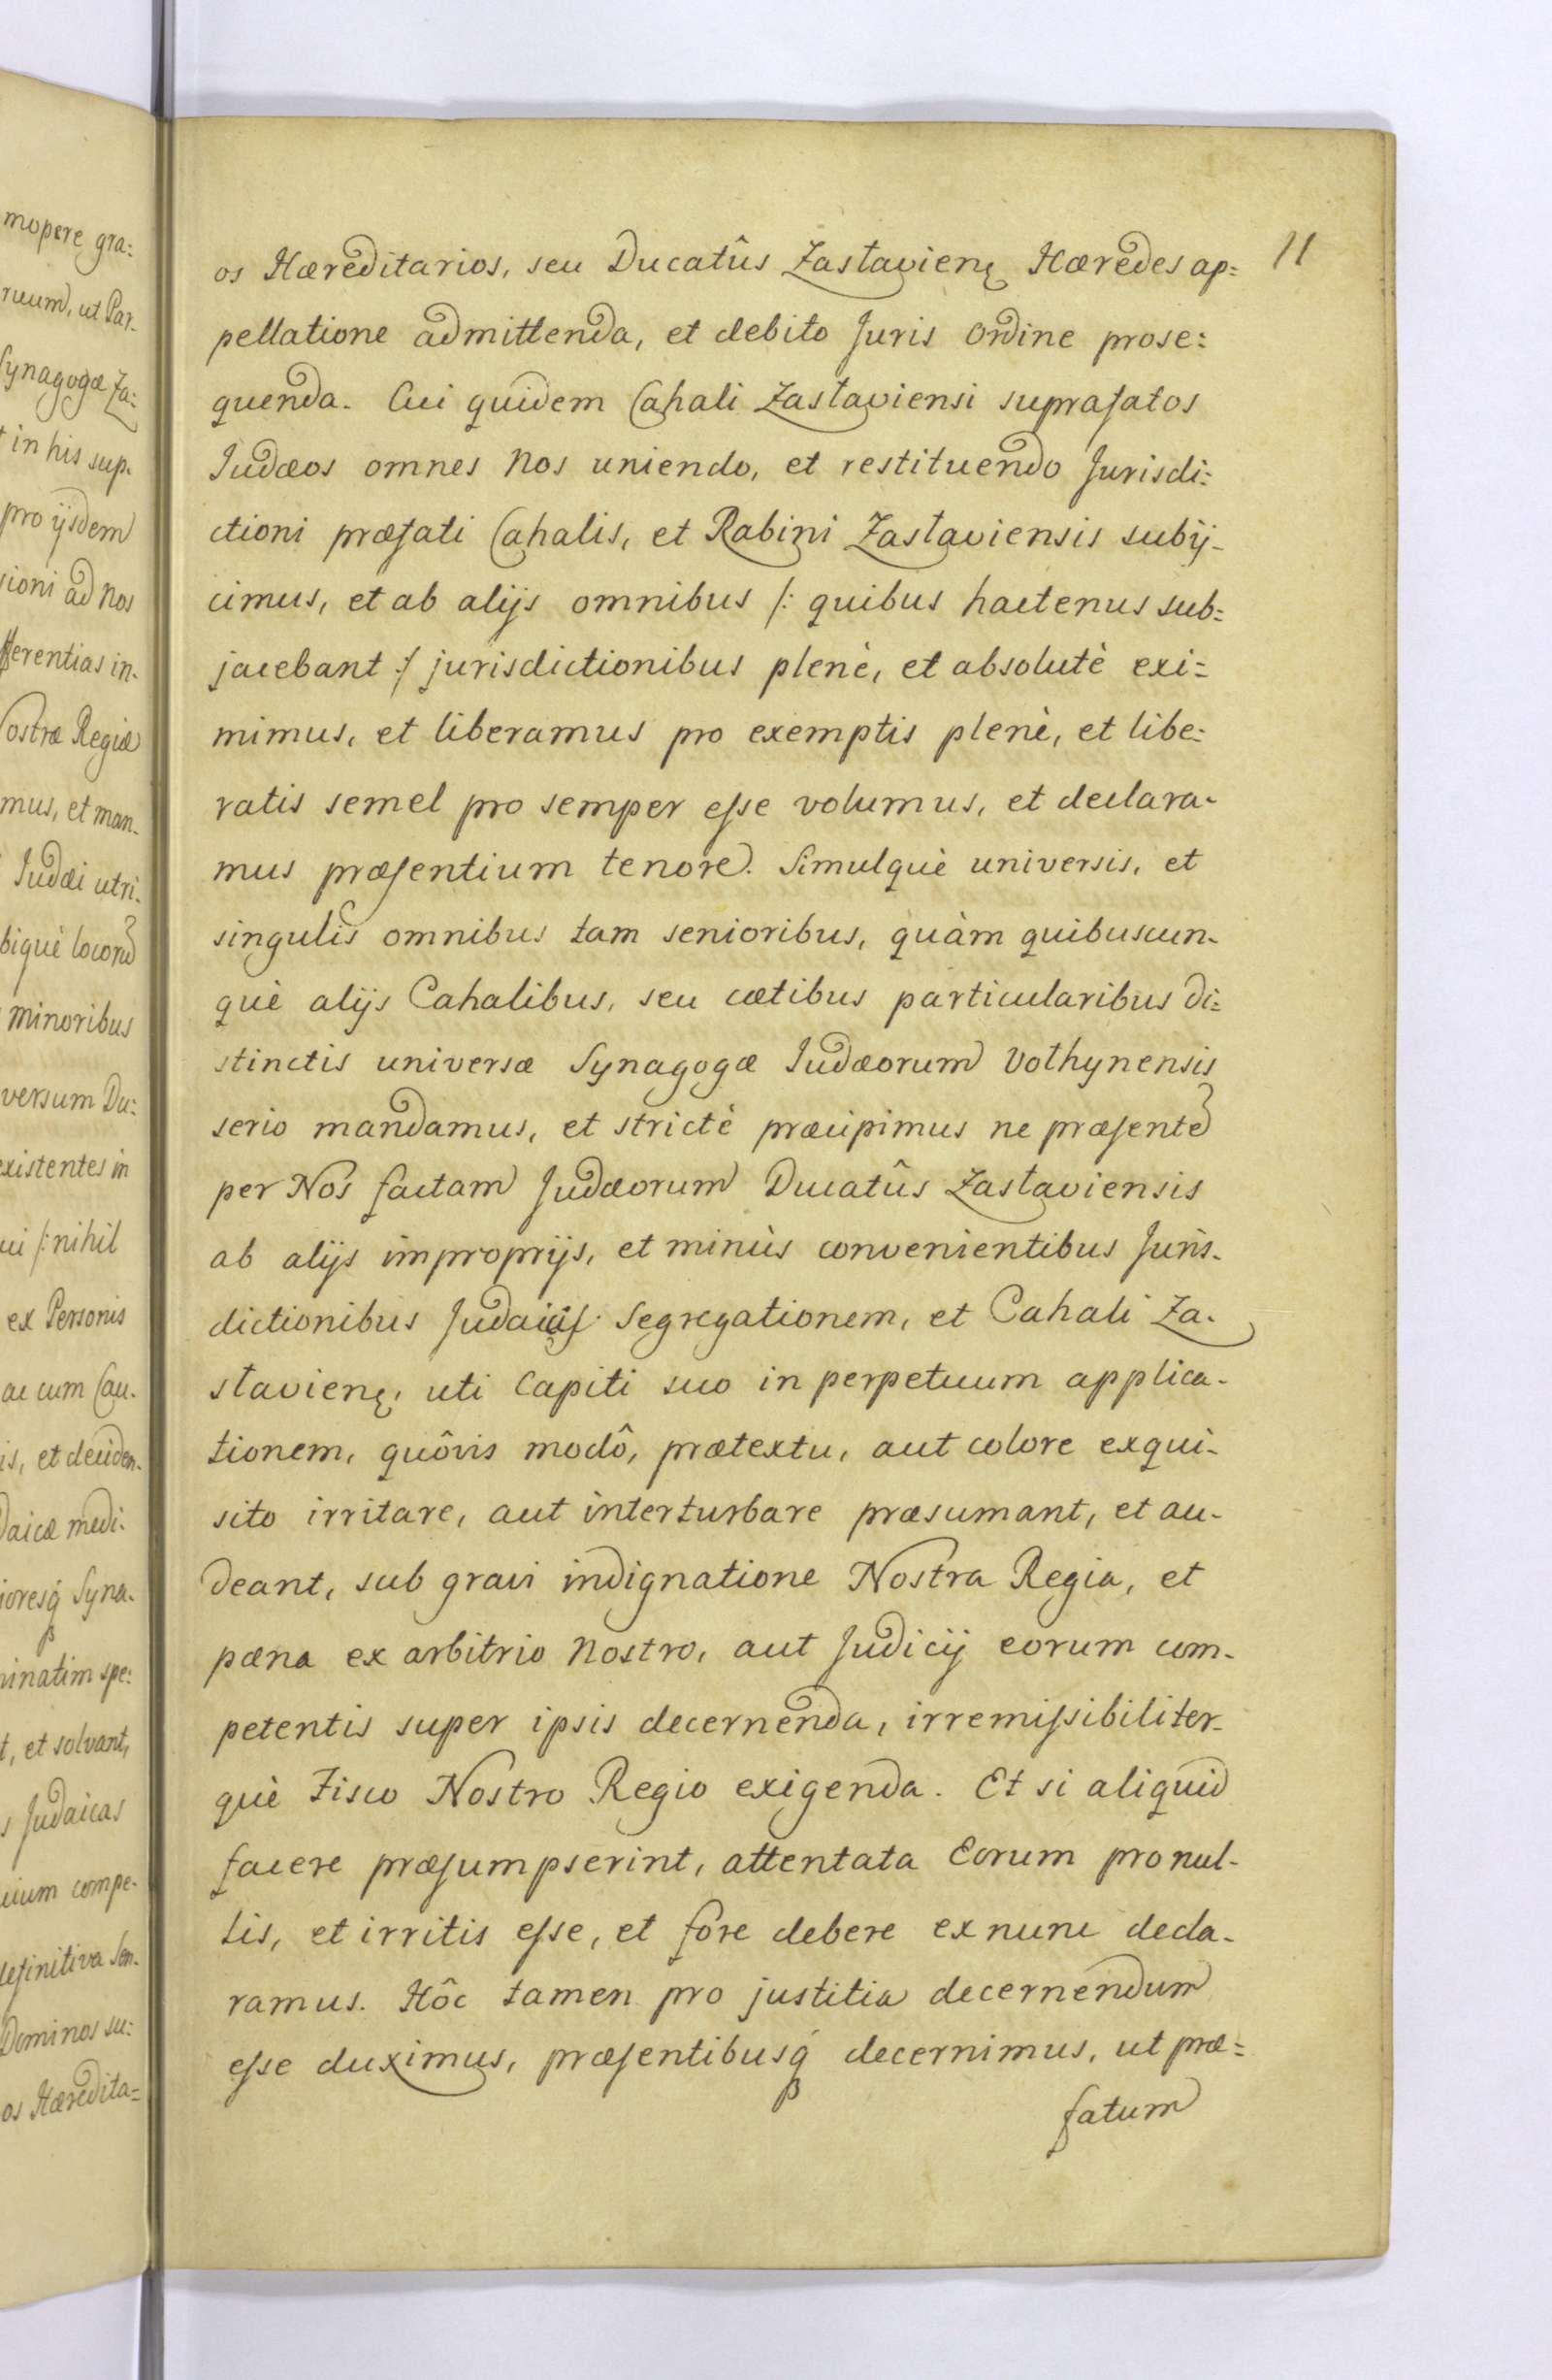 mopere gra:
ruum, ut Par-
Synagogæ Za:
in his sup-
pro ijsdem
sioni ad Nos
fferentias in-
Nostræ Regiæ
mus, et man-
Judæi utri-
biquè locorũ
minoribus
versum Du:
existentes in
/: nihil
ex Personis
ac cum Cau-
is, et deciden-
daicæ medi-
ioresq́ Syna-
inatim spe:
t, et solvant,
s Judaicas
compe-
definitiva Sen-
Dominos su:
os Hæredita=
11
os Hæreditarios, seu Ducatûs Zastavienę Hæredes ap=
pellatione admittenda, et debito Juris Ordine prose:
quenda. Cui quidem Cahali Zastaviensi suprafatos
Judæos omnes Nos uniendo, et restituendo Jurisdi:
ctioni præfati Cahalis, et Rabini Zastaviensis subij-
cimus, et ab alijs omnibus /: quibus hactenus sub=
jacebant :/ jurisdictionibus plenè, et absolutè exi=
mimus, et liberamus pro exemptis plenè, et libe:
ratis semel pro semper esse volumus, et declara-
mus præsentium tenore. Simulquè universis, et
singulis omnibus tam senioribus, quàm quibuscun-
què alijs Cahalibus, seu cætibus particularibus di=
stinctis universæ Synagogæ Judæorum Volhynensis
serio mandamus, et strictè præcipimus ne præsentẽ
per Nos factam Judæorum Ducatûs Zastaviensis
ab alijs improprijs, et minùs convenientibus Juris-
dictionibus Judaicis segregationem, et Cahali Za-
stavienę, uti Capiti suo in perpetuum applica-
tionem, quôvis modô, prætextu, aut colore exqui-
sito irritare, aut interturbare præsumant, et au-
deant, sub gravi indignatione Nostra Regia, et
pæna ex arbitrio Nostro, aut Judicij eorum com-
petentis super ipsis decernenda, irremissibiliter-
què Fisco Nostro Regio exigenda. Et si aliquid
facere præsumpserint, attentata Eorum pro nul-
lis, et irritis esse, et fore debere ex nunc decla-
ramus. Hôc tamen pro justitia decernendum
esse duximus, præsentibusq́ decernimus, ut præ=
fatum